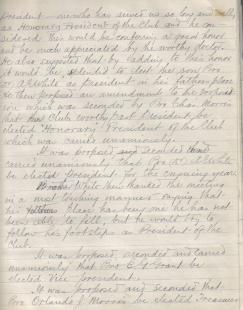 President one who has served us so long and
as Honorary President of the Club and he con
sidered this would be confering a great honor
and be much appreciated by the worthy doctor.
He also suggested that by adding to this honor
it would be splendid to elect the son Bro
as President in his Fathers place
an amendment to the
was seconded by Bro Chas Morris
that our Club worthy past President be
elected Honorary President of the Club
which was carried unamiously.
It was proposed and seconded and
carried unamiously that Bro White
be elected president for the ensuing year.
Bro White then thanked the meeting
in a most touching manner saying that
his Fathers place has been one he has not
been able to fill, but he would try to
follow his footsteps as President of the
Club.
It was proposed seconded and carried
unamiously that Bro E Grant be
elected Vice president.
It was proposed and seconded that
Bro Orlando J Morris be elected Treasurer